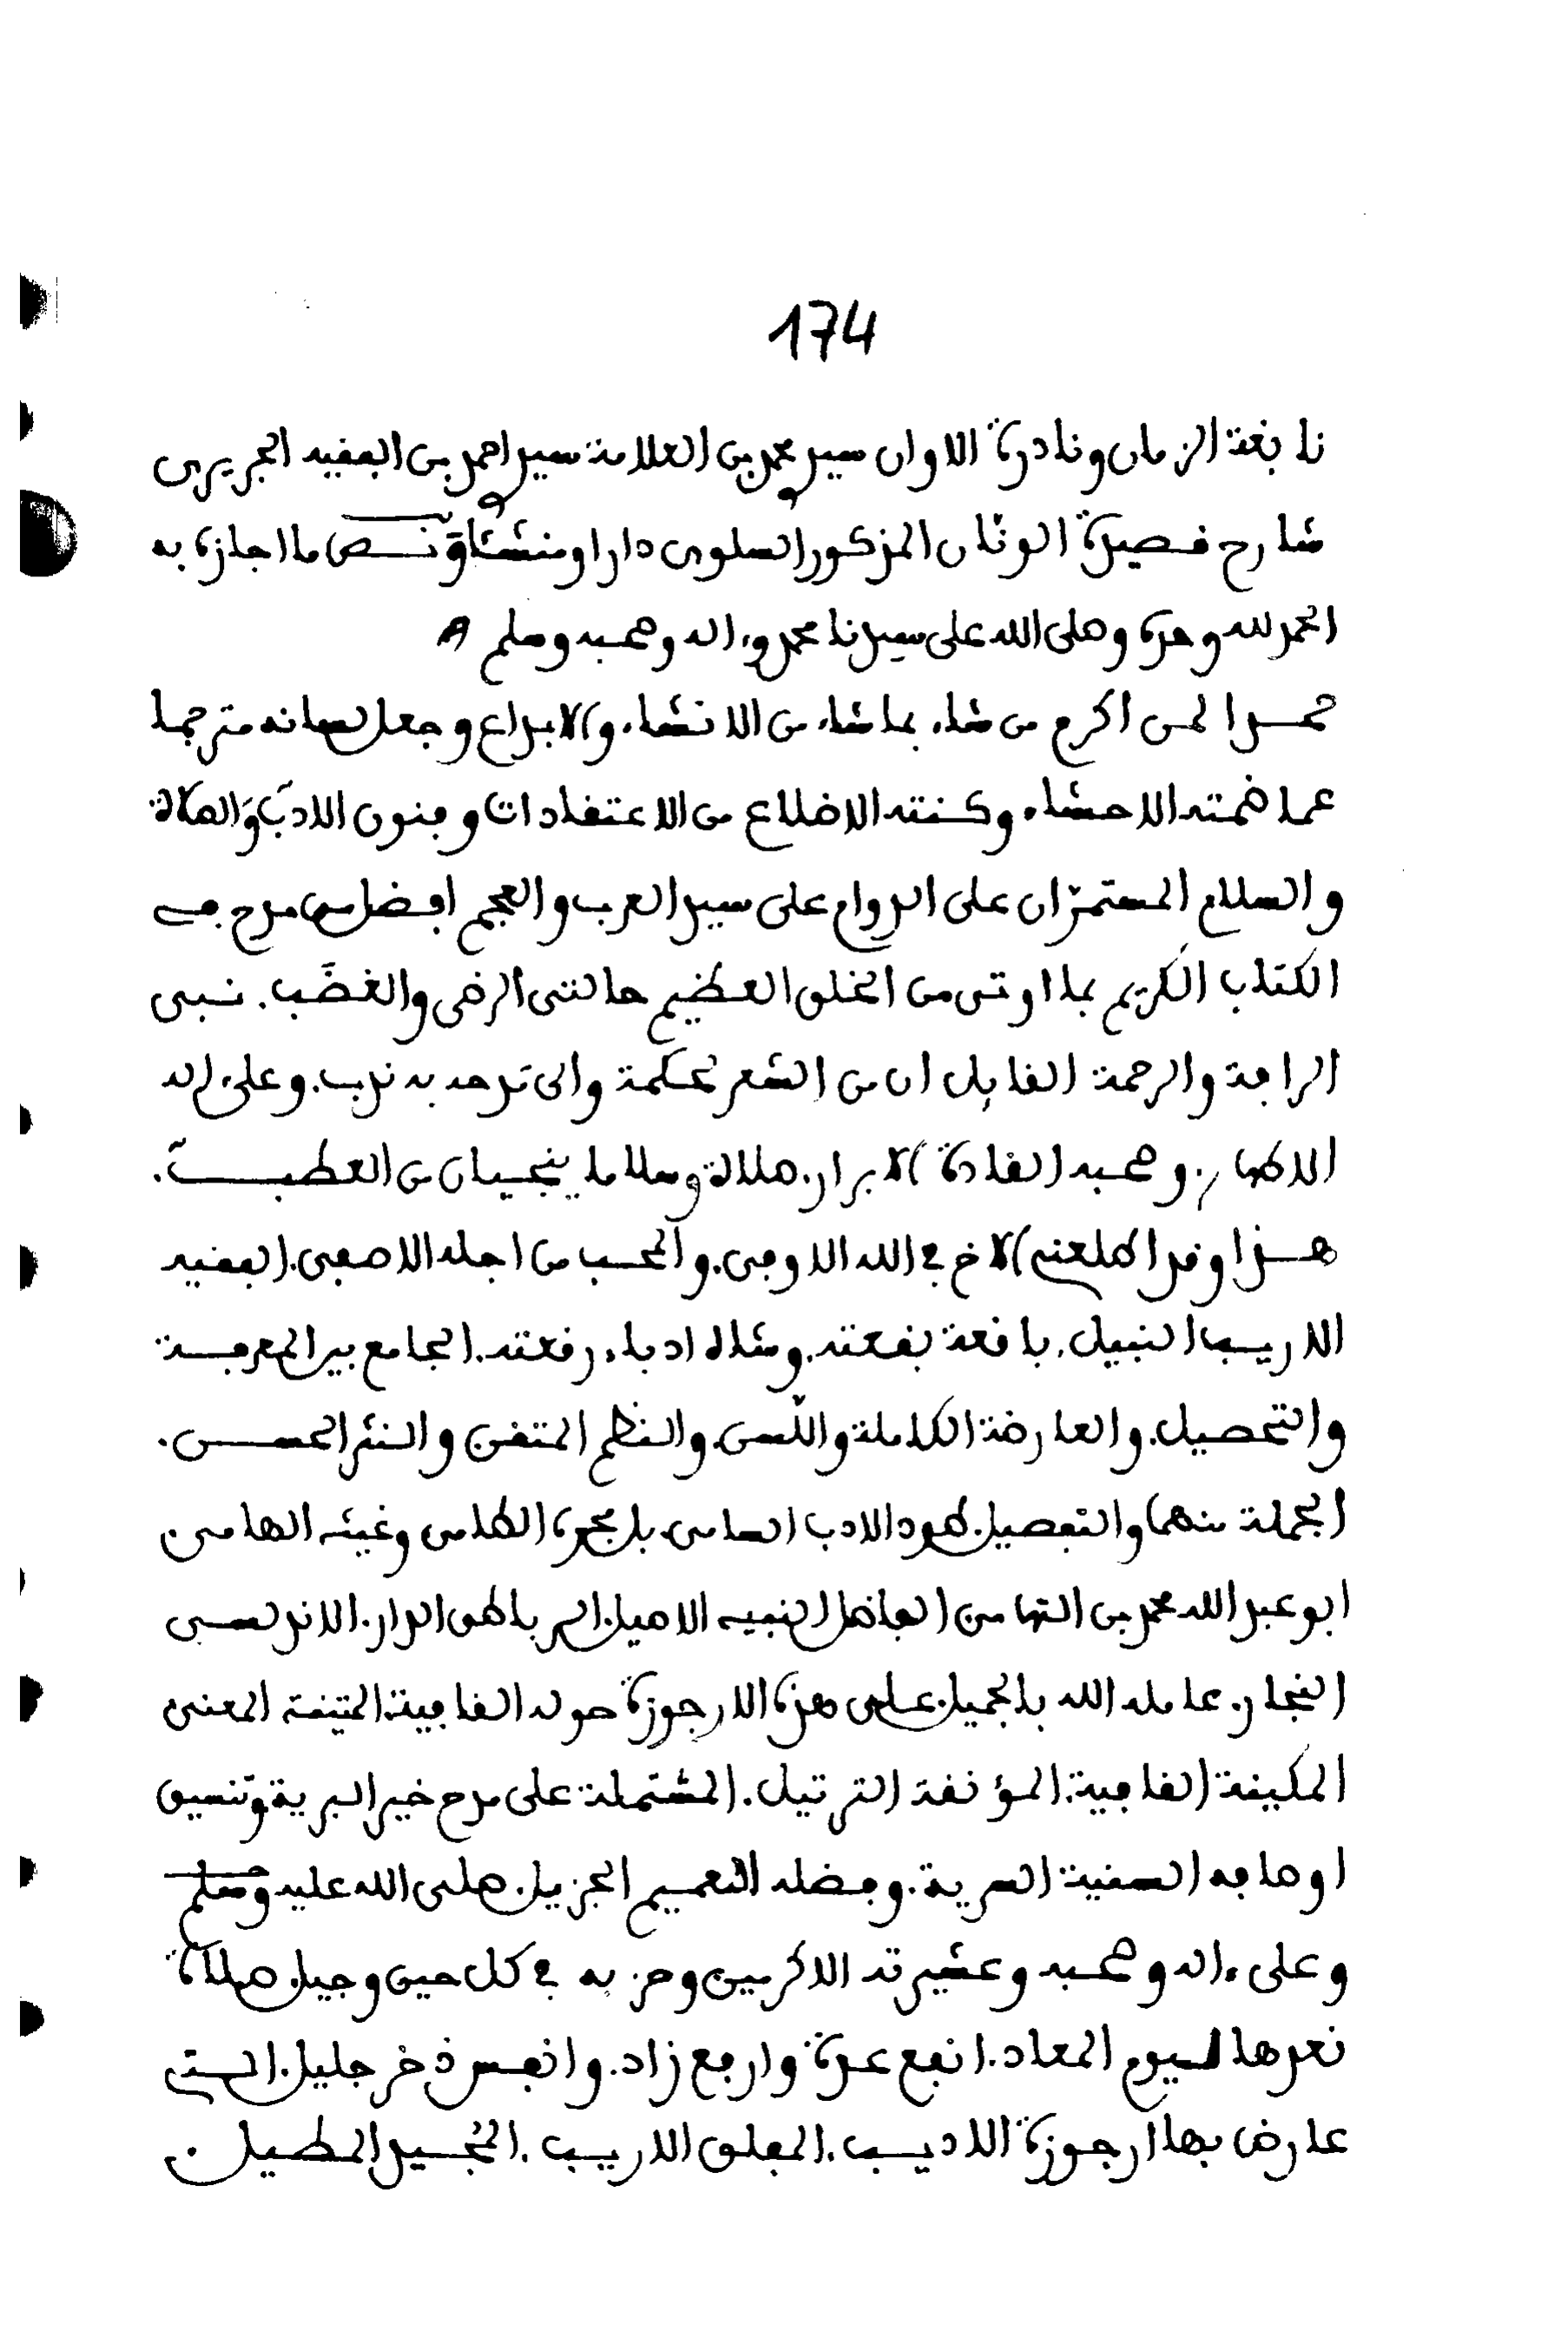 174
نابغة الزمان ونادرة الاوان سيد محمد بن العلامة سيد احمد بن الفقيه الجريرى
شارح قصيدة الونان المذكور السلوى دارا ومنشئا ونص ما اجازه به
الحمد لله وحده وصلى الله على سيدنا محمد وءاله وصحبه وسلم
حمدا لمن اكرم من شاء بما شاء من الانشاء والابداع وجعل لسانه مترجما
عما ضمته الاحشاء وكنته الاضلاع من الاعتقادات وفنون الادب والصلاة
والسلام المستمران على الدوام على سيد العرب والعجم افضل من مدح في
الكتاب الكريم بما اوتى من الخلق العظيم حالتى الرضى والغضب. نبى
الرافة والرحمة القايل ان من الشعر لحكمة والى مدحه به ندب. وعلى اله
الاطهار. وصحبه القادة الابرار. صلاة وسلاما ينجيان من العطب.
هذا وقد اطلعنى الاخ في الله الاوفى. والمحب من اجله الاصفى. الفقيه
الاريب النبيل. يافعة بقعته. ومثال ادباء رقعته. الجامع بين المعرفة
والتحصيل. والعارضة الكاملة واللسن. والنظم المتقن والنثر الحسن.
الجملة منهما والتفصيل. طود الادب السامى. بل بحره الطامى وغيثه الهامى.
ابو عبد الله محمد بن التهامى الفاضل النبيه الاصيل. الرباطى الدار. الاندلسى
النجار. عامله الله بالجميل. على هذه الارجوزة حوله القافية. المتيفة المعنى
المكيفة القافية. المؤنقة الترتيل. المشتملة على مدح خير البرية وتنسيق
اوصافه السنية السرية. وفضله العميم الجزيل. صلى الله عليه وسلم
وعلى ءاله وصحبه وعشيرته الاكرمين وحزبه في كل حين وجيل. صلاة
نعدها ليوم المعاد. انفع عدة وارفع زاد. وانفس ذخر جليل. التى
عارض بها ارجوزة الاديب. المفلق الاريب. المجيد المطيل.